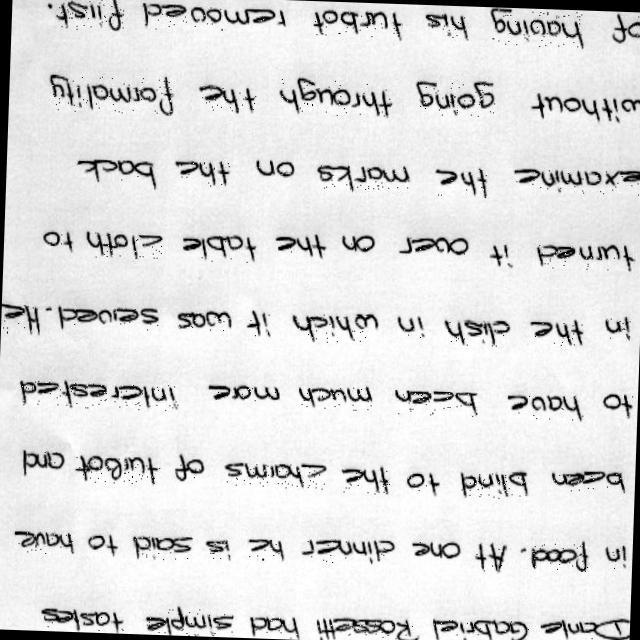 Dante Gabriel Rossetti had simple tastes
in food. At one dinner he is said to have
been blind to the charms of turbot and
to have been much more interested
in the dish in which it was served. He
turned it over on the table cloth to
examine the marks on the back
without going through the formality
of having his turbot removed first.